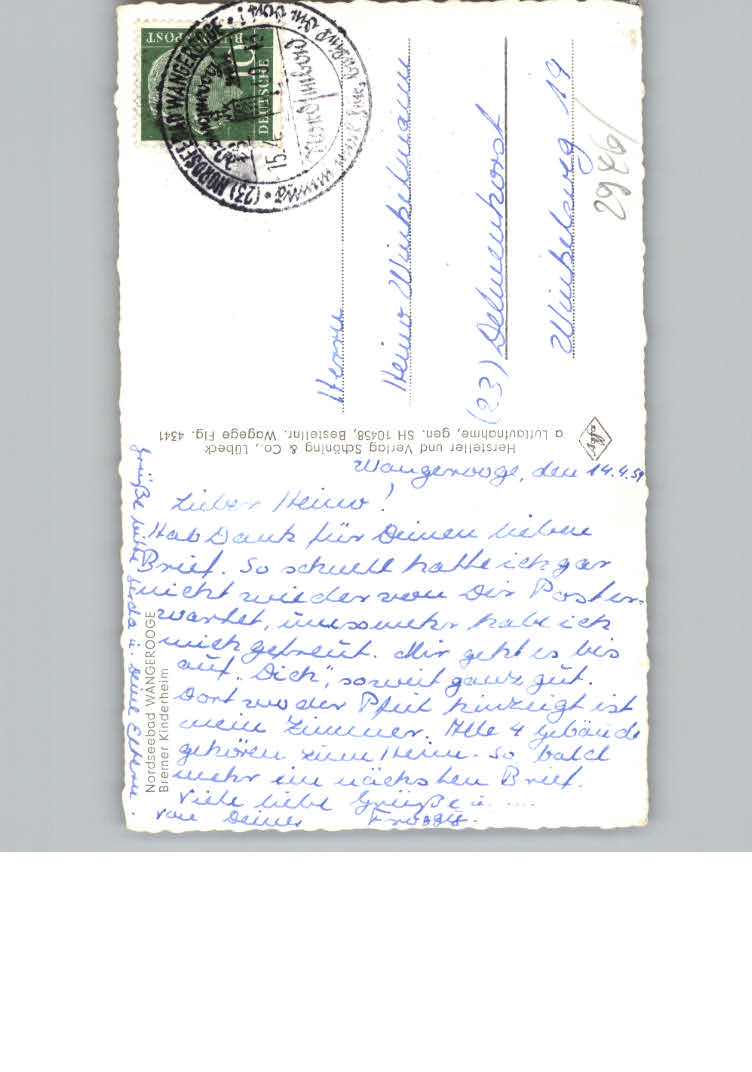 Wangerooge, den 14.4.59
Lieber Heino!
Hab Dank für Deinen lieben
Brief. So schnell hatte ich gar
nicht wieder von Dir Post er-
wartet, umsomehr habe ich
mich gefreut. Mir geht es bis
auf "Dich", soweit ganz gut.
Dort wo der Pfeil hinzeigt ist
mein Zimmer. Alle 4 Gebäude
gehören zum Heim. So bald
mehr im nächsten Brief.
Viele liebe Grüße u. ....
von Deiner
Grüße bitte Gerda u. Deine Eltern.
Nordseebad WANGEROOGE
Bremer Kinderheim
Hersteller und Verlag Schöning & Co., Lübeck
a Luftaufnahme, gen. SH 10458, Bestellnr. Wagege Flg. 4341
Herrn
Heino Winkelmann
(23) Delmenhorst
Winkelweg 19
2976/
DEUTSCHE
BUNDESPOST
10
(23) NORDSEEBAD WANGEROOGE
15.4.